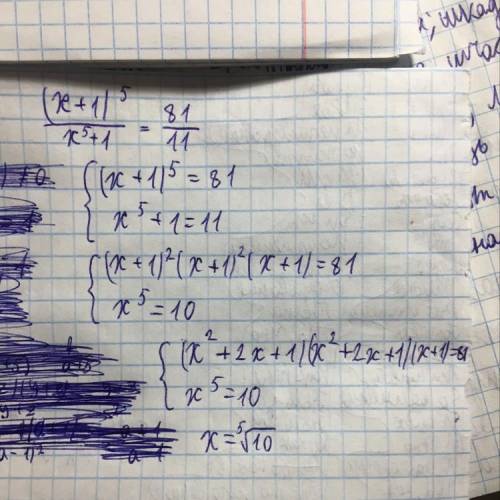 (x+1)^5 / x^5+1 = 81/11
{ (x+1)^5 = 81
x^5 + 1 = 11
{ (x+1)^2 (x+1)^2 (x+1) = 81
x^5 = 10
{ (x^2 + 2x + 1)(x^2 + 2x + 1)(x+1) = 81
x^5 = 10
x = ⁵√10